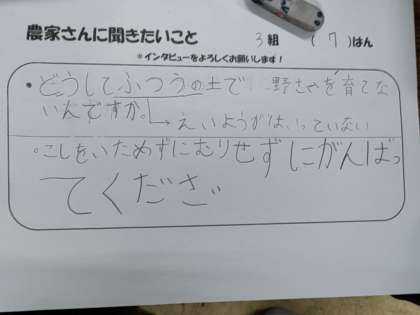 農家さんに聞きたいこと 3組 (7)はん
*インタビューをよろしくお願いします!
・どうしてふつうの土で野さいを育てな
いんですか。→えいようがはいっていない
。こしをいためずにむりせずにがんばっ
てください